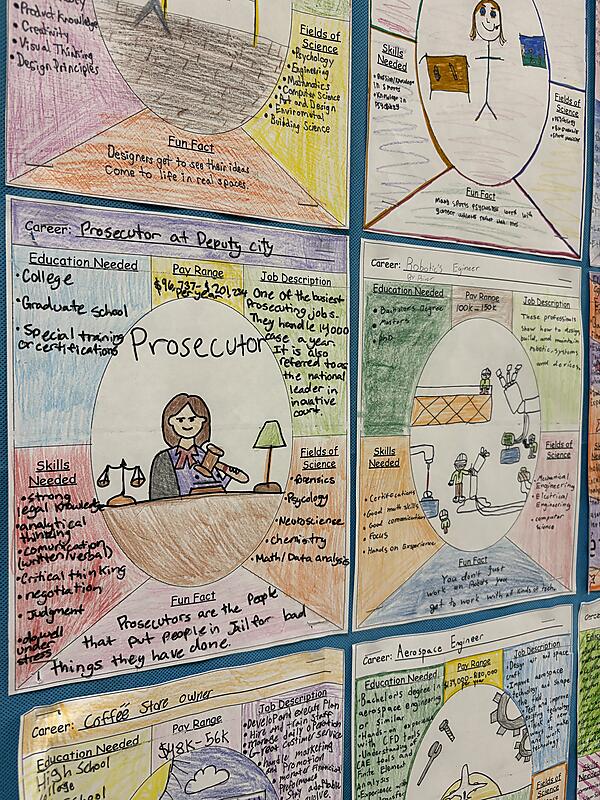 Product Knowledge
• Creativity
• Visual Thinking
• Design Principles
Fields of
Science
• Psychology
• Engineering
• Mathmatics
• Computer Science
• Art and Design
• Enviromental
Building Science
Fun Fact
Designers get to see their ideas
Come to life in real spaces.
Skills
Needed
Knowledge
in Sports
• Knowledge in
Fields of
Science
Fun Fact
Many sports psycologists work with
Career: Prosecutor at Deputy city
Education Needed
• College
• Graduate school
• Special training
or certifications
Pay Range
$96,737-$201,234
per year
Job Description
One of the busiest
Prosecuting jobs.
They handle 14000
case a year.
It is also
referred to as
the national
leader in
inovative
court
Prosecutor
Skills
Needed
• strong
legal knowledge
• analytical
thinking
• comunication
(written/verbal)
• Critical thinking
• negotiation
• Judgment
• do well
under
stress
Fields of
Science
• Forensics
• Psycology
• Neuroscience
• Chemistry
• Math/Data analysis
Fun Fact
Prosecutors are the People
that put people in Jail for bad
things they have done.
Career: Robotic's Egineer
Education Needed
• Bachalor's Degree
• Masters
• PhD
Pay Range
100K - 150K
Job Description
These professionals
show how to design
build, and maintain
robotic, systems
and devices.
Skills
Needed
• Certifications
• Good math skills
• Good comunication
• Focus
• Hands on Experience
Fields of
Science
• Mechanical
Engineering
• Electrical
Engineering
• computer
science
Fun Fact
You don't just
work on Robots you
get to work with all kinds of tech.
Career: Coffee Store owner
Education Needed
High School
Pay Range
$48K-56K
Job Description
• Develop and execute Plan
• Hire and train Staff
• manage daily operation
• Great customer Service
• handle marketing
and Promotion
Career: Aerospace Engineer
Education Needed
Bachelor's degree in
aerospace engineering
or similar
Hands-on experience
with CFD tools
Understanding of
CAE tools and
Finite Element
Analysis
Experience with
Pay Range
per year
Job Description
• Design air and space
craft
• Improve aerospace
technology
Fields of